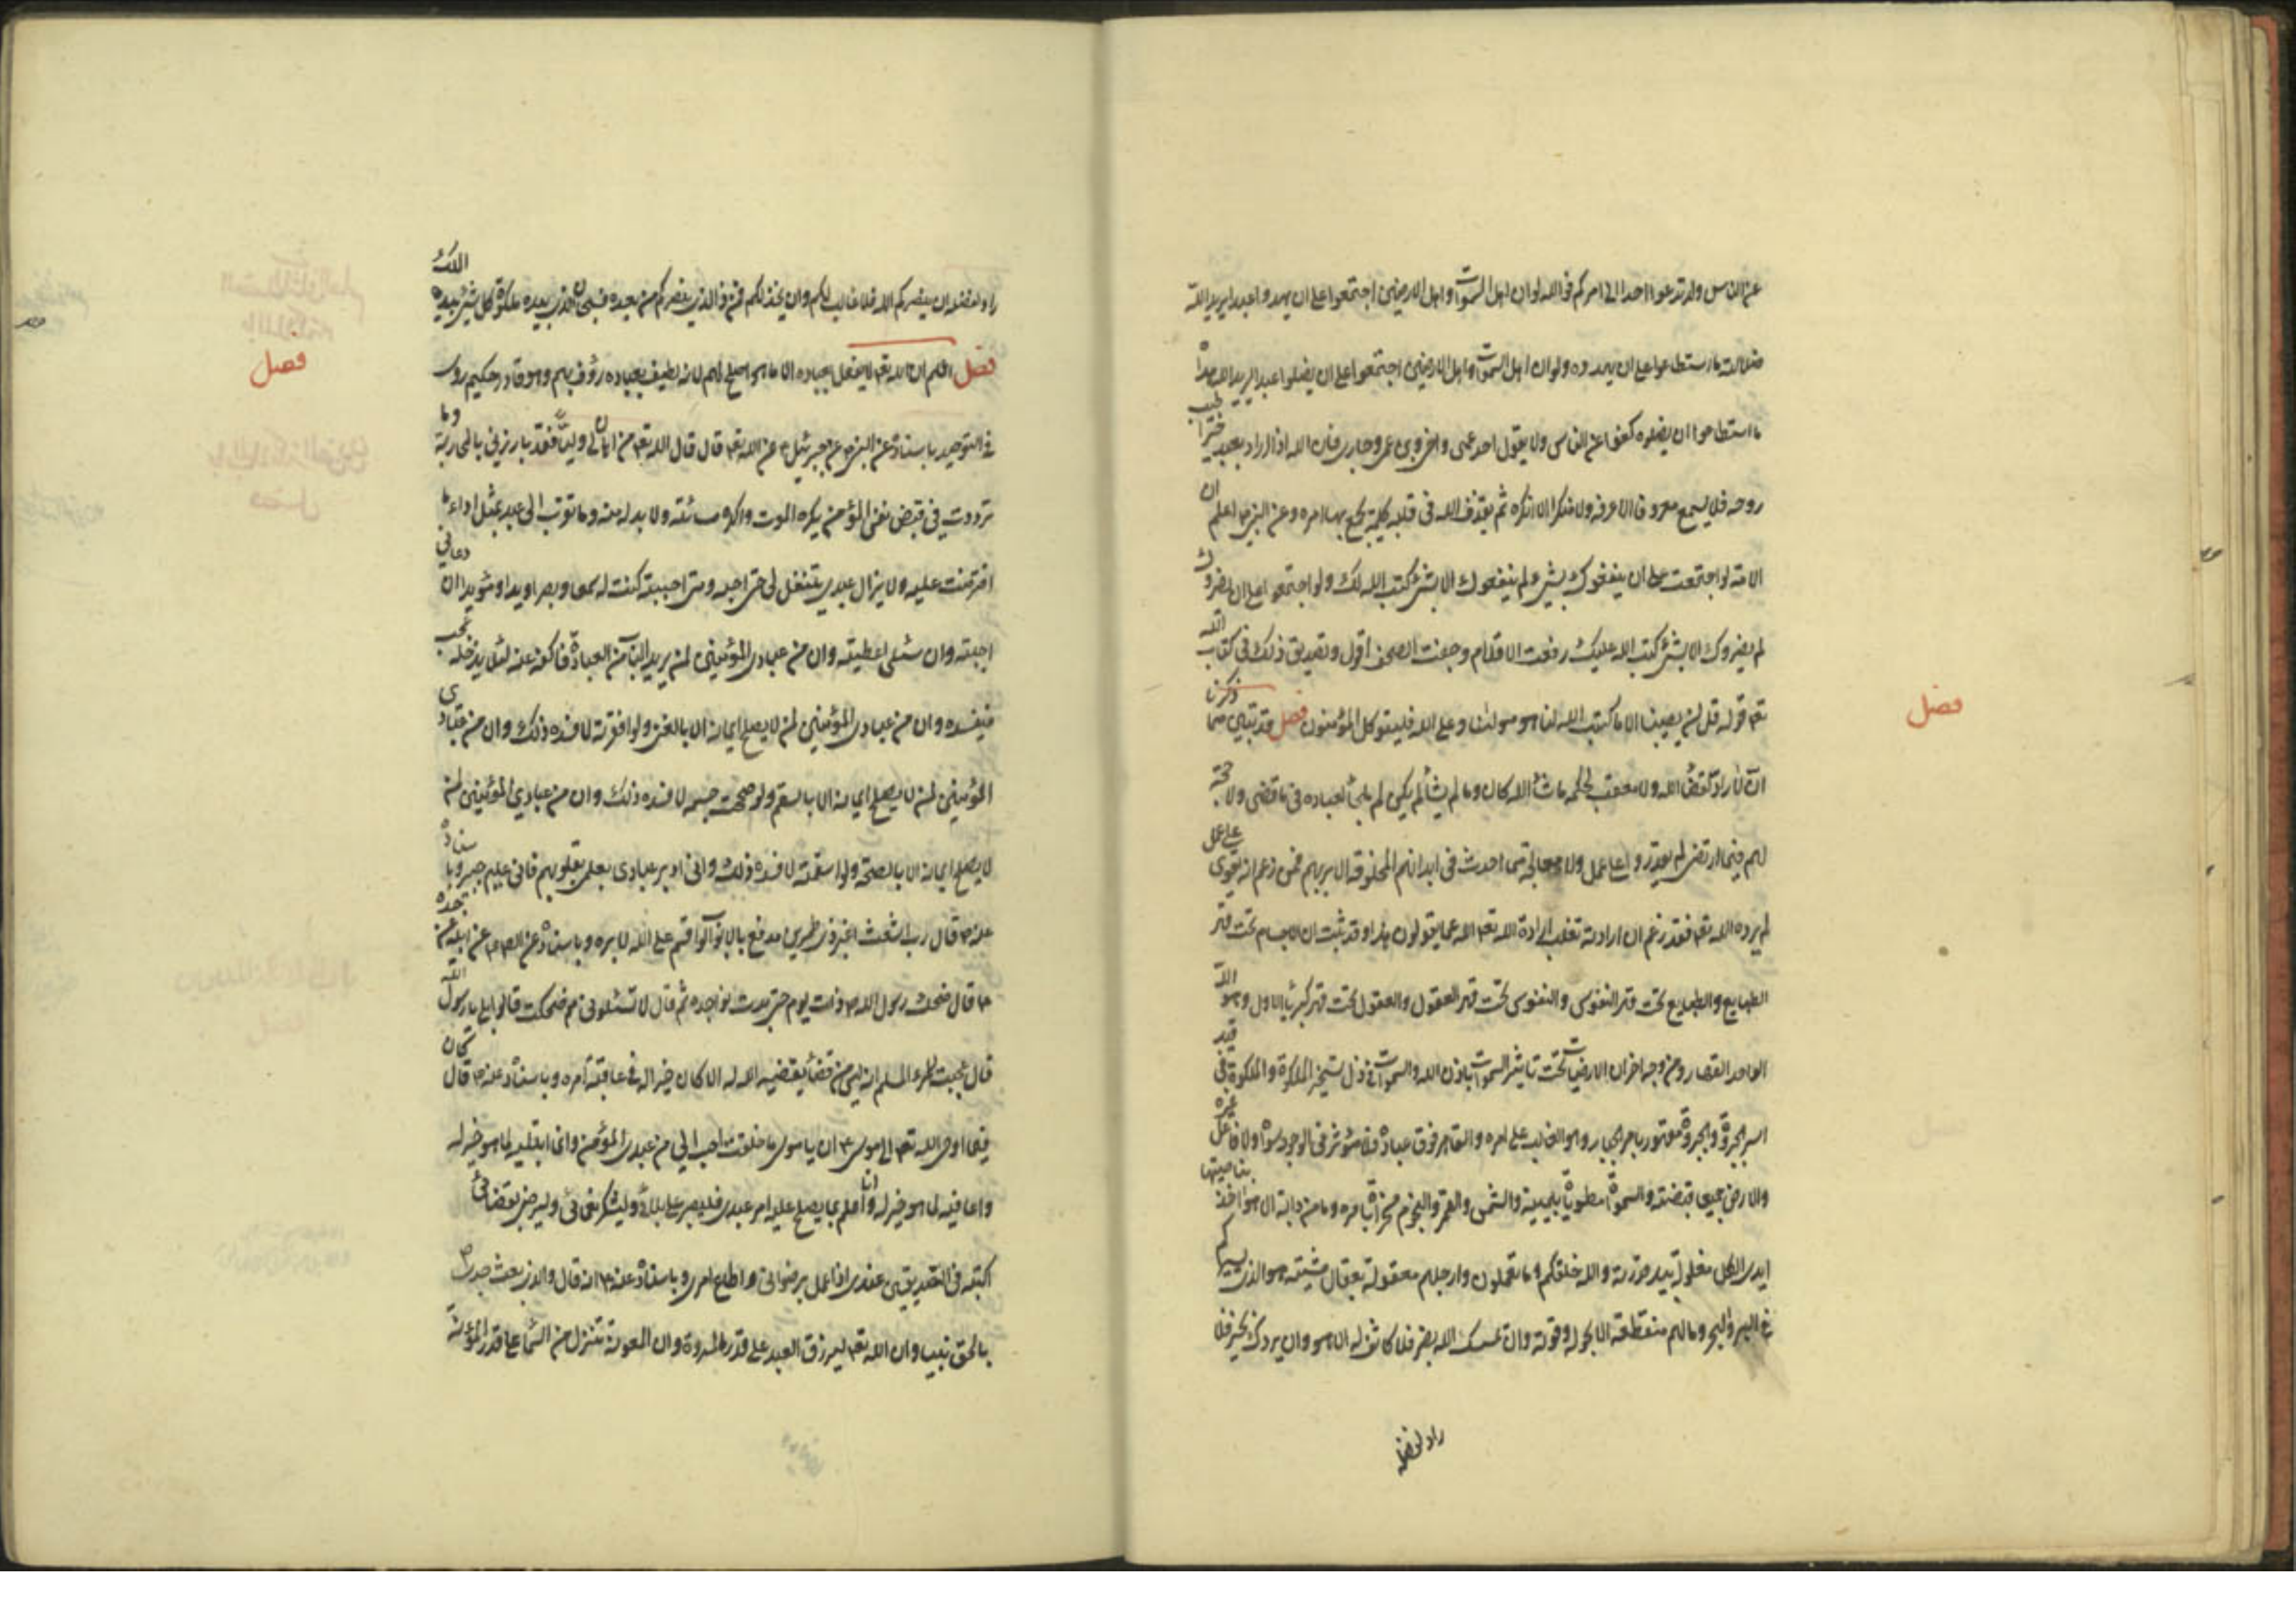 عن الناس ولا تدعوا احدا الى امركم فو الله لو ان اهل السموات واهل الارضين اجتمعوا على ان يهدوا عبدا يريد الله
ضلالته ما استطاعوا على ان يهدوه ولو ان اهل السموات واهل الارضين اجتمعوا على ان يضلوا عبدا يريد الله هداه
ما استطاعوا ان يضلوه كفوا عن الناس ولا يقول احد عمى واخى وبن عمى وجارى فان الله اذا اراد بعبد خيرا طيب
روحه فلا يسمع معروفا الا عرفه ولا منكرا الا انكره ثم يقذف الله فى قلبه كلمة يجمع بها امره وعن النبى ص اعلم ان
الامة لو اجتمعت على ان ينفعوك بشئ لم ينفعوك الا بشئ كتب الله لك ولو اجتمعوا على ان يضروك
لم يضروك الا بشئ كتب الله عليك رفعت الاقلام وجفت الصحف اقول وتصديق ذلك فى كتاب الله
تعه قوله قل لن يصيبنا الا ما كتب الله لنا هو مولينا وعلى الله فليتوكل المؤمنون فصل قد تبين مما ذكرنا
ان لا راد لقضاء الله ولا معقب لحكمه ما شاء الله كان وما لم يشأ لم يكن لم يلجأ لعباده فى ما قضى ولا حجة
لهم فيما ارتضى لم يقدروا على عمل ولا معالجة مما احدث فى ابدانهم المخلوقة الا بربهم فمن زعم انه يقوى على عمل
لم يرده الله تعه فقد زعم ان ارادته تغلب ارادة الله تعه الله عما يقولون هذا وقد ثبت ان الاجسام تحت قهر
الطبايع والطبايع تحت قهر النفوس والنفوس تحت قهر العقول والعقول تحت قهر كبرياء الاول وهو الله
الواحد القهار ومن وجه اخر ان الارضيات تحت تأثير السموات باذن الله والسموات فى ذل تسخير الملكوة والملكوة فى قيد
اسر الجبروة والجبروة مقهور بامر الجبار وهو الغالب على امره والقاهر فوق عباده فلا مؤثر فى الوجود سواه ولا فاعل غيره
والارض جميعا قبضته والسموات مطويات بيمينه والشمس والقمر والنجوم مسخرات بامره وما من دابة الا هو اخذ بناصيتها
ايدى الكل مغلولة بيد قدرته والله خلقكم وما تعملون وارجلهم معقولة بعقال مشيته هو الذى يسيركم
فى البر والبحر وما لهم منقطعة الا بحوله وقوته وان يمسسك الله بضر فلا كاشف له الا هو وان يردك بخير فلا
راد لفضله
فصل
راد لفضله ان ينصركم الله فلا غالب لكم وان يخذلكم فمن ذا الذى ينصركم من بعده فسبحان الذى بيده ملكوة كل شئ بيده الملك
فصل اعلم ان الله تعه لا يفعل بعباده الا ما هو اصلح لهم لانه لطيف بعباده رؤف بهم وهو قادر حكيم روى
فى التوحيد باسناده عن النبى ص عن جبرئيل ع عن الله تعه قال قال الله تعه من اهان لى وليا فقد بارزنى بالمحاربة وما
ترددت فى قبض نفس المؤمن يكره الموت واكره مسائته ولا بد له منه وما تقرب الى عبدى بمثل اداء ما
افترضت عليه ولا يزال عبدى يتنفل لى حتى احبه ومتى احببته كنت له سمعا وبصرا ويدا ومؤيدا ان دعانى
اجبته وان سئلنى اعطيته وان من عبادى المؤمنين لمن يريد الباب من العبادة فاكفه عنه لئلا يدخله عجب
فيفسده وان من عبادى المؤمنين لمن لا يصلح ايمانه الا بالغنى ولو افقرته لافسده ذلك وان من عبادى
المؤمنين لمن لا يصلح ايمانه الا بالسقم ولو صححت جسمه لافسده ذلك وان من عبادى المؤمنين لمن
لا يصلح ايمانه الا بالصحة ولو اسقمته لافسده ذلك وانى ادبر عبادى بعلمى بقلوبهم فانى عليم خبير وباسناده
عنه ص قال رب اشعث اغبر ذى طمرين مدفع بالابواب لو اقسم على الله لابره وباسناده عن الص ع عن ابيه عن جده
ع قال ضحك رسول الله ص ذات يوم حتى بدت نواجده ثم قال لا تسئلونى مم ضحكت قالوا بلى يا رسول الله
قال عجبت للمرء المسلم انه ليس من قضاء يقضيه الله له الا كان خيرا له فى عاقبة امره وباسناده عنه ع قال كان
فيما اوحى الله تعه الى موسى ع ان يا موسى ما خلقت خلقا احب الى من عبدى المؤمن وانى ابتليه لما هو خير له
واعافيه لما هو خير له وانا اعلم بما يصلح عليه امر عبدى فليصبر على بلائى وليشكر نعمائى وليرض بقضائى
اكتبه فى الصديقين عندى اذا عمل برضوانى واطاع امرى وباسناده عنه ع انه قال والذى بعث جدى ص
بالحق نبيا وان الله تعه ليرزق العبد على قدر المروة وان المعونة تتنزل من السماء على قدر المؤنة
فصل